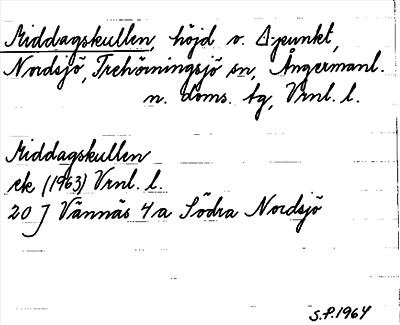 Middagskullen, höjd v. Δ:punkt,
Nordsjö, Trehörningsjö sn, Ångermanl.
n. doms. tg, Vrnl. l.
Middagskullen
ek (1963) Vrnl. l.
20 J Vännäs 4a Södra Nordsjö
S.P. 1964